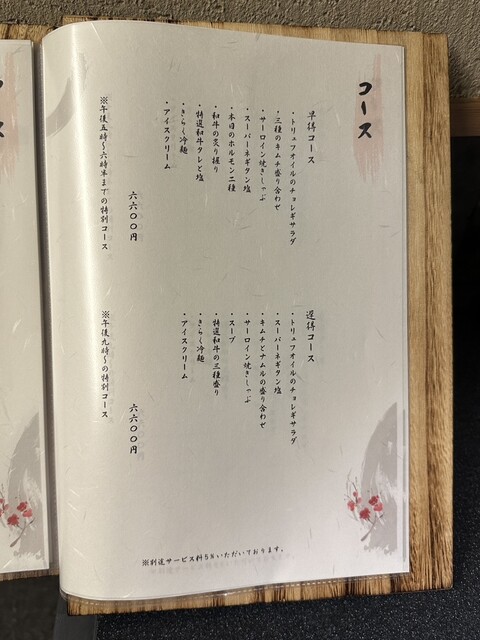 コース
早得コース
・トリュフオイルのチョレギサラダ
・三種のキムチ盛り合わせ
・サーロイン焼きしゃぶ
・スーパーネギタン塩
・本日のホルモン二種
・和牛の炙り握り
・特選和牛タレと塩
・きらく冷麺
・アイスクリーム
六六００円
※午後五時〜六時半までの特別コース
遅得コース
・トリュフオイルのチョレギサラダ
・スーパーネギタン塩
・キムチとナムルの盛り合わせ
・サーロイン焼きしゃぶ
・スープ
・特選和牛の三種盛り
・きらく冷麺
・アイスクリーム
六六００円
※午後九時〜の特別コース
※別途サービス料5％いただいております。